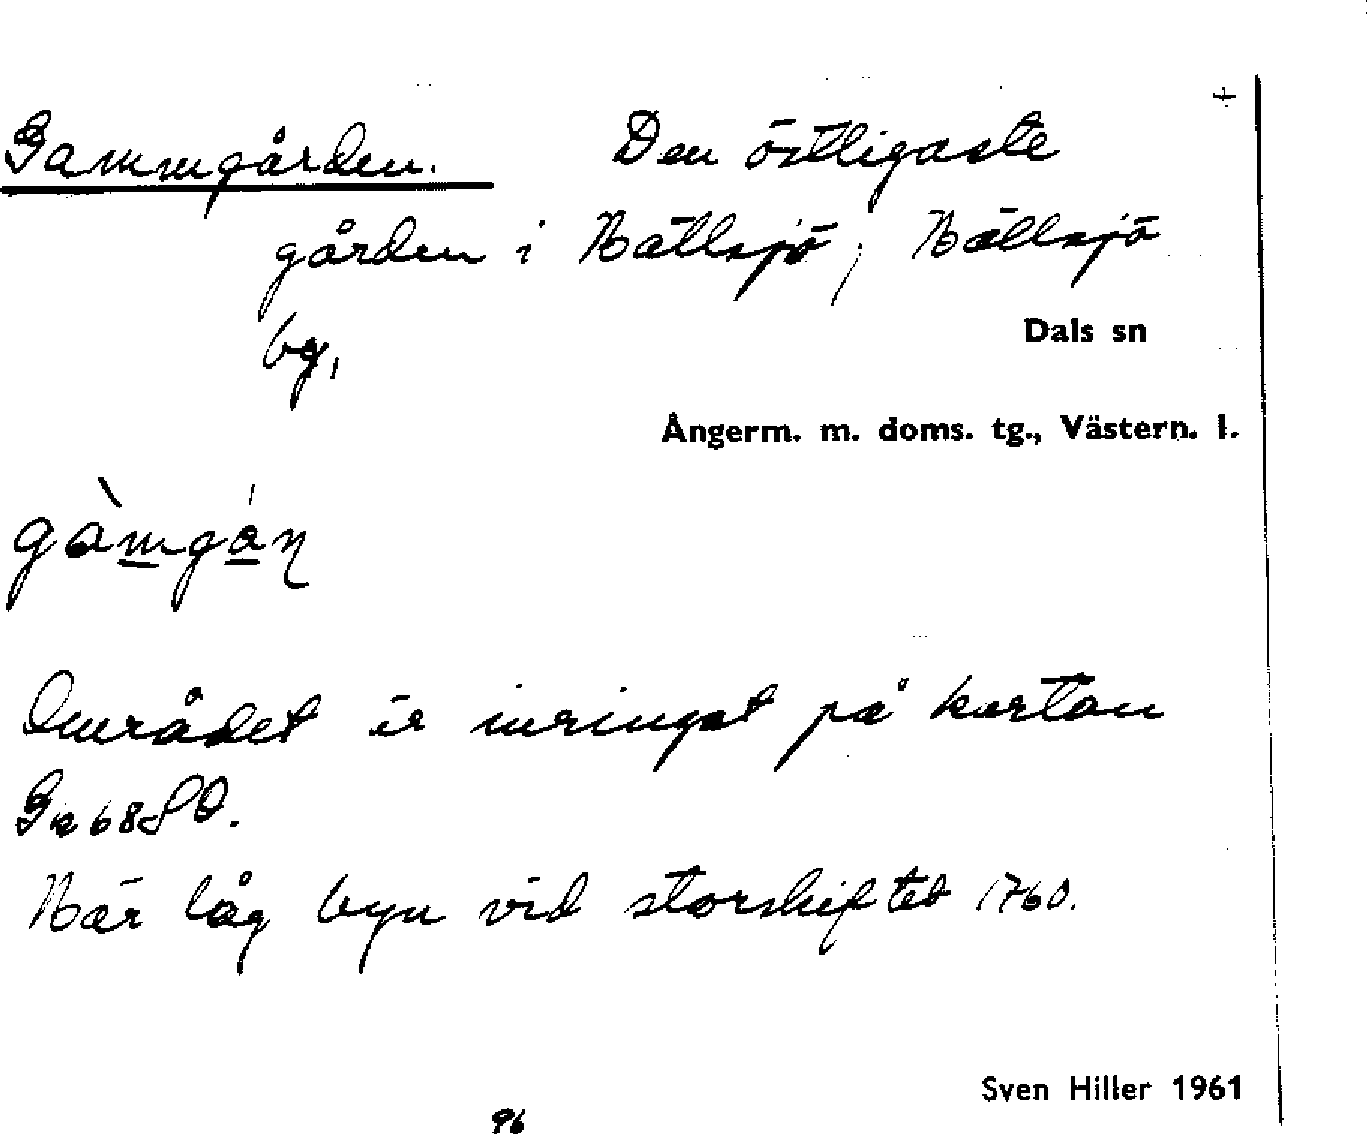 +
Gammgården. Den östligaste
gården i Hällsjö; Hällsjö
by,
Dals sn
Ångerm. m. doms. tg., Västern. l.
gàmgán
Området är inringat på kartan
8680.
Här låg byn vid storskiftet 1760.
Sven Hiller 1961
96